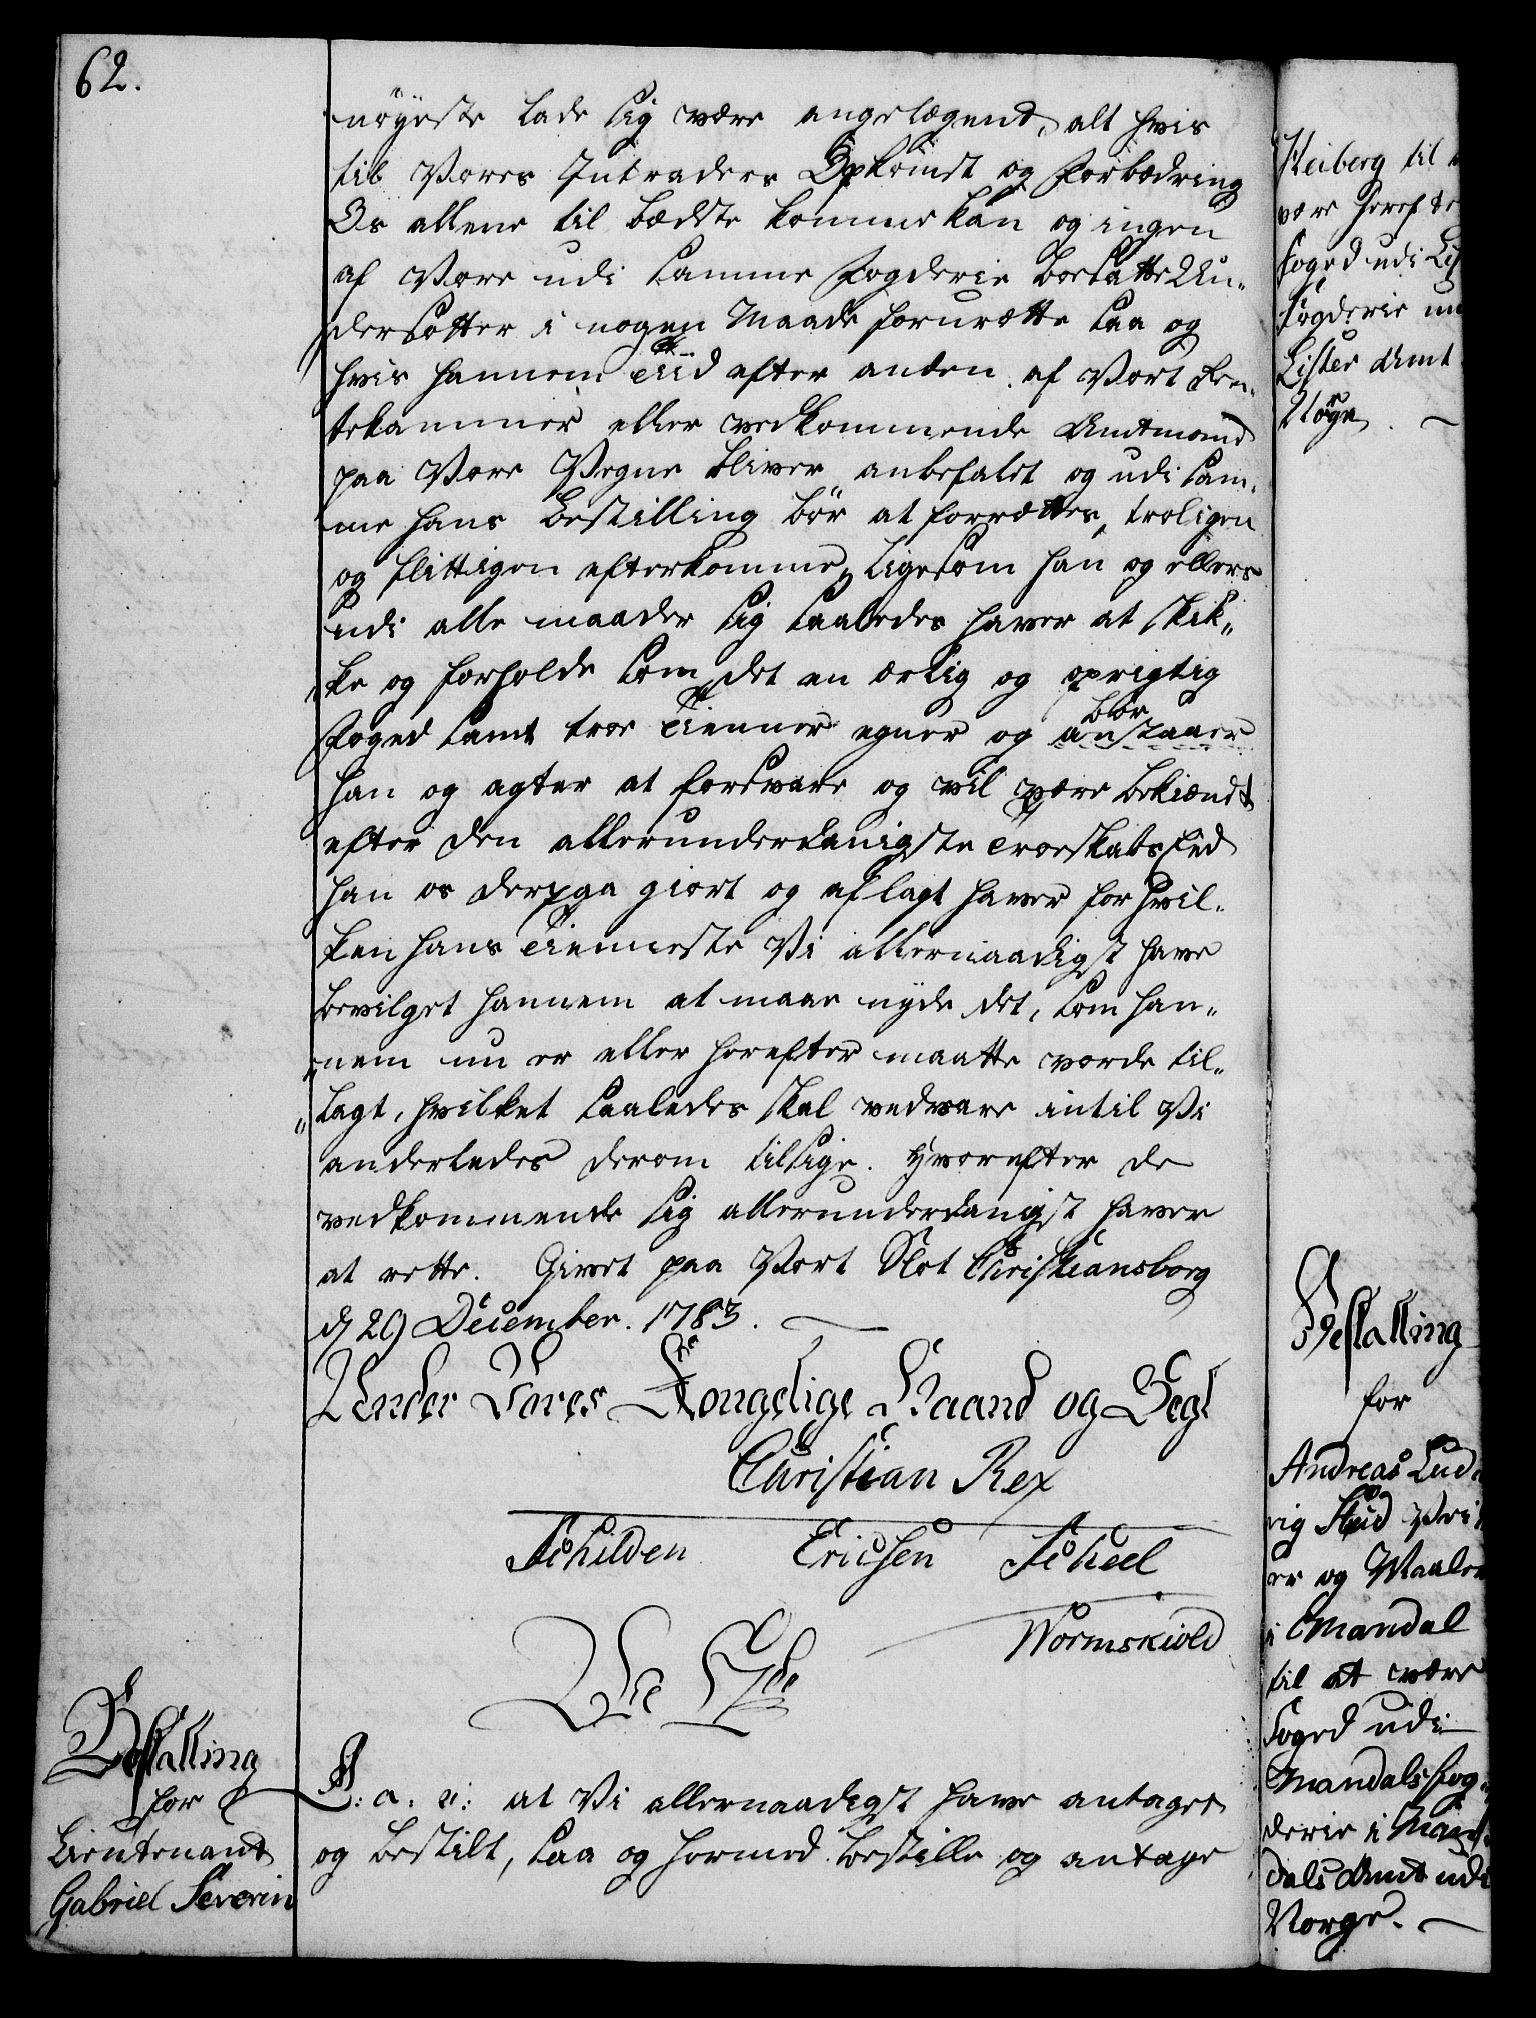 62.
nöyeste lade sig være angelægend, alt hvis
til Vores Intraders Opkomst og Forbedring
Os allene til bædste komme kan og ingen
af Vore udi samme Fogderie boesatte Un-
dersotter i nogen Maade forurætte saa og
hvis hannem Tiid efter anden af Vort Ren-
tekammer eller vedkommende Amtmand
paa Vore Vegne bliver anbefalet og udi sam-
me hans Bestilling bör at forrættes, troligen
og flittigen efterkomme, ligesom han og ellers
udi alle maader sig saaledes haver at skik-
ke og forholde som det en ærlig og oprigtig
Foged samt troe Tienner egner og bör anstaaer
han og agter at forsvare og vil være bekiendt
efter den allerunderdanigste Troeskabs Eed
han os derpaa giort og aflagt haver for hvil-
ken hans Tienneste Vi allernaadigst have
bevilget hannem at maae nyde det, som han-
nem nu er eller herefter maatte vorde til-
lagt, hvilket saaledes skal vedvare intil Vi
anderledes derom tilsige. Hvorefter de
vedkommende sig allerunderdanigst haver
at rette. Givet paa Vort Slot Christiansborg
d 29 December. 1783.
Under Vores Kongelige Haand og Segl
Christian Rex
Schilden Ericksen Scheel
Wormskiold
Vie C 7de
Bestalling
for
Lieutenant
Gabriel Severin
G: a. v: at Vi allernaadigst have antaget
og bestilt, saa og hermed bestille og antage
Heiberg til
være herefter
Foged udi Lis
Fogderie un
Lister Amt
Norge.
Bestalling
for
Andreas Lud-
vig Stud
er og Maaler
i Mandal
til at være
Foged udi
Mandals Fog-
derie i Man-
dals Amt udi
Norge.